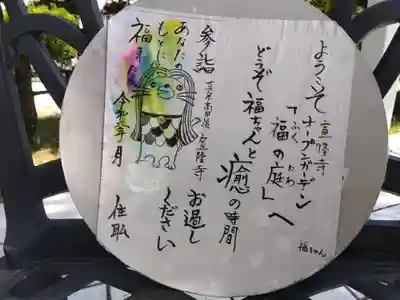 ようこそ宣隆寺
オープンガーデン
「福の庭」へ
ふく にわ
どうぞ福ちゃんと
癒の時間
お過し
ください
住職
福ちゃん
参詣
宣隆寺
あなたの
もとに
福
令和 年 月